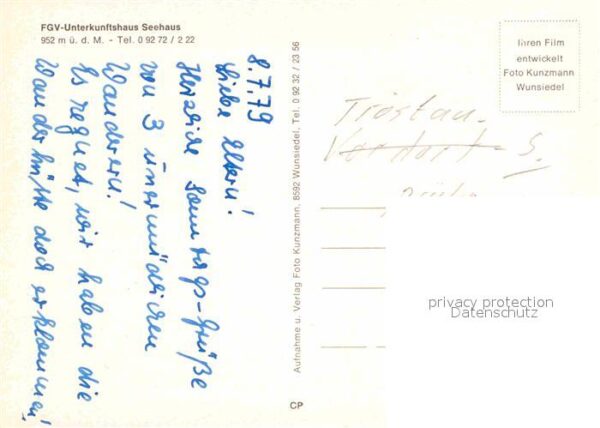 FGV-Unterkunftshaus Seehaus
952 m ü. d. M. - Tel. 0 92 72 / 2 22
8.7.79
Liebe Eltern!
Herzliche Sonntags-Grüße
von 3 unermüdlichen
Wanderern!
Es regnet, wir haben die
Wanderhütte doch erklommen!
Aufnahme u. Verlag Foto Kunzmann, 8592 Wunsiedel, Tel. 0 92 32 / 23 56
CP
Ihren Film
entwickelt
Foto Kunzmann
Wunsiedel
Tröstau-
Vordorf S.
privacy protection
Datenschutz